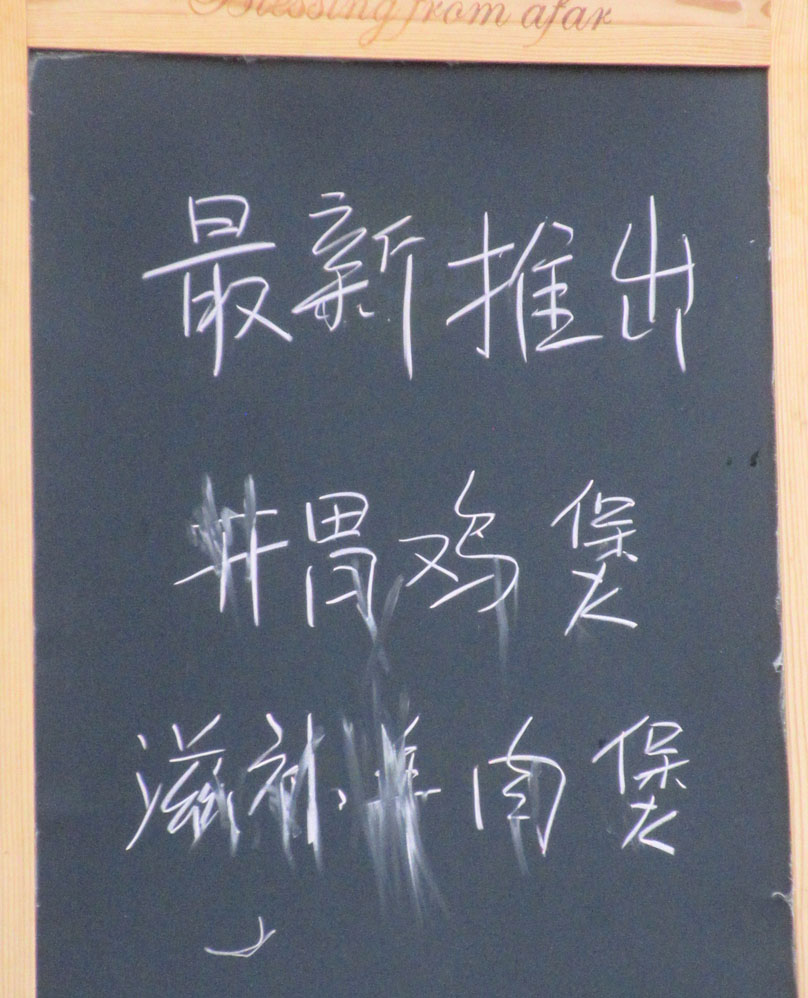 Blessing from afar
最新推出
胃鸡煲
滋补羊肉煲